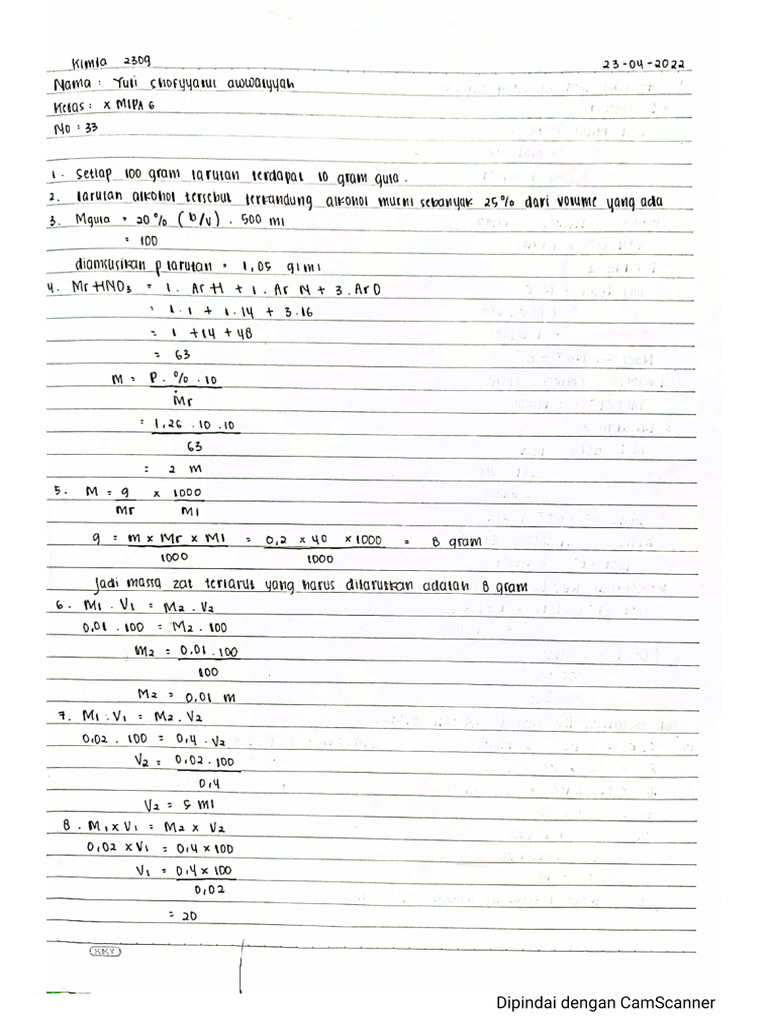 Kimia 2309
23-04-2022
Nama : Yuli Choryyatul awwalyyah
Kelas : X MIPA 6
No : 33
1. Setiap 100 gram larutan terdapat 10 gram gula.
2. larutan alkohol tersebut terkandung alkohol murni sebanyak 25% dari volume yang ada
3. Mgula = 20% (b/v) . 500 ml
= 100
diamsusikan ρ larutan = 1,05 g/ml
4. Mr HNO3 = 1. Ar H + 1. Ar N + 3. Ar O
= 1.1 + 1.14 + 3.16
= 1 + 14 + 48
= 63
M = P . % . 10
Mr
= 1,26 . 10 . 10
63
= 2 M
5. M = g x 1000
Mr Ml
g = m x Mr x Ml = 0,2 x 40 x 1000 = 8 gram
1000 1000
Jadi massa zat terlarut yang harus dilarutkan adalah 8 gram
6. M1 . V1 = M2 . V2
0,01 . 100 = M2 . 100
m2 = 0,01 . 100
100
M2 = 0,01 m
7. M1 . V1 = M2 . V2
0,02 . 100 = 0,4 . V2
V2 = 0,02 . 100
0,4
V2 = 5 ml
8. M1 x V1 = M2 x V2
0,02 x V1 = 0,4 x 100
V1 = 0,4 x 100
0,02
= 20
KKY
Dipindai dengan CamScanner